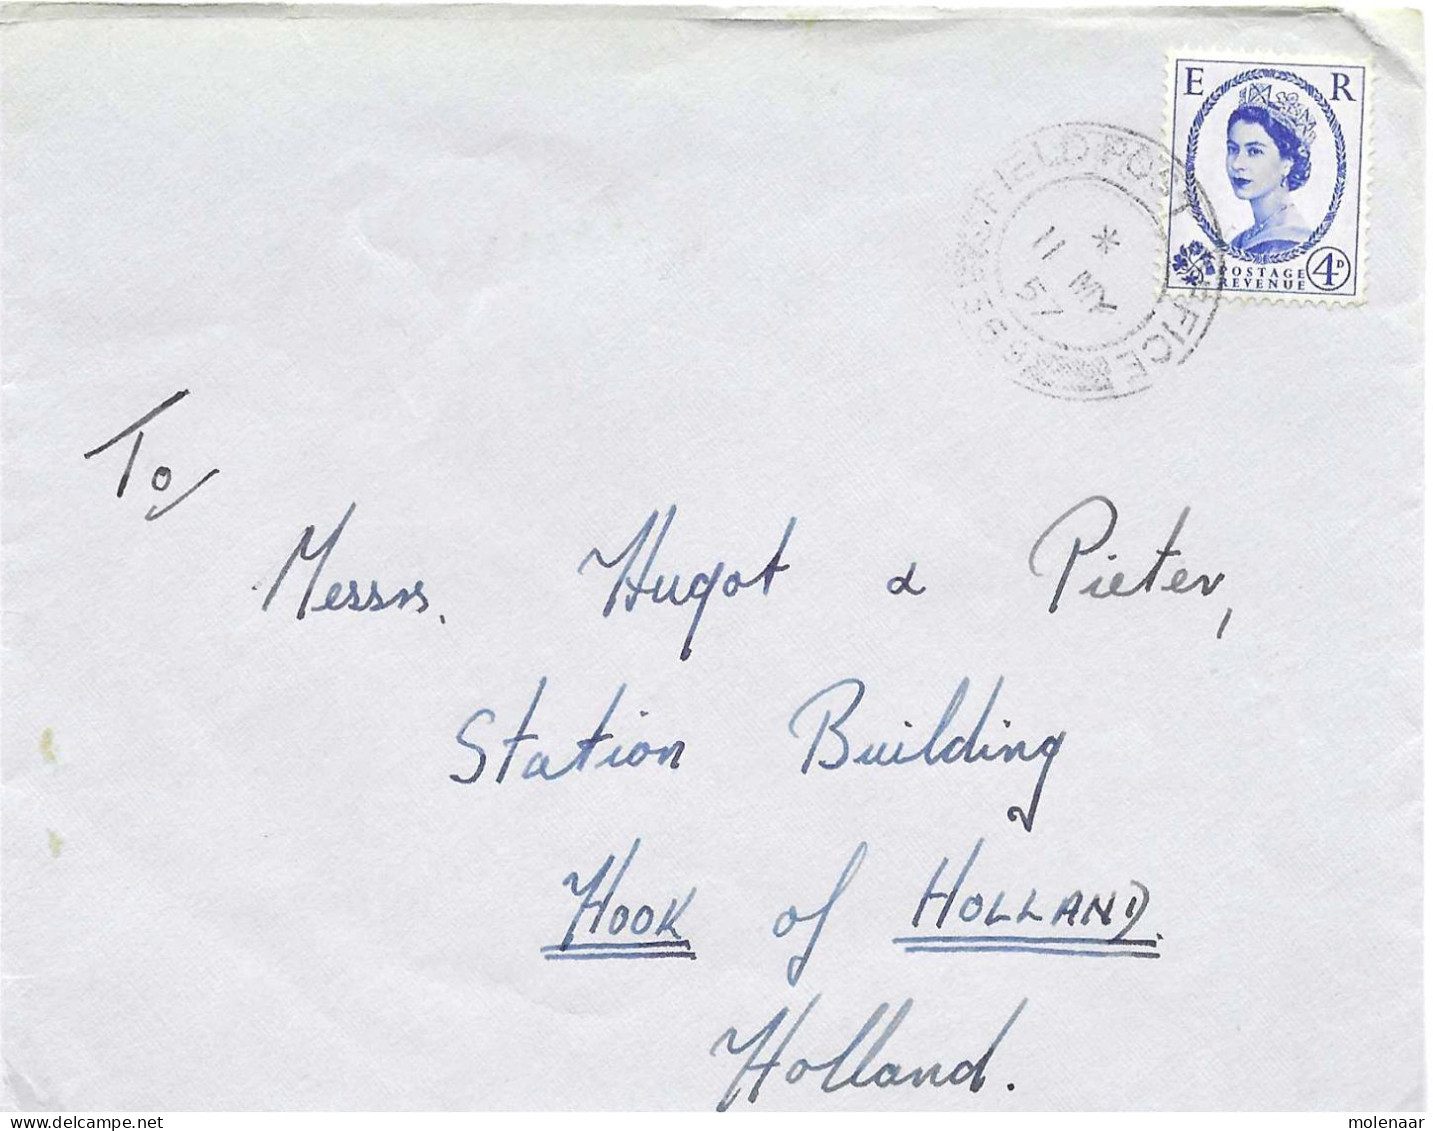 E R
POSTAGE
REVENUE 4D
FIELD POST OFFICE
*
11 MY
57
To
Messrs. Hugot & Pieter,
Station Building
HOOK of HOLLAND.
Holland.
molenaar